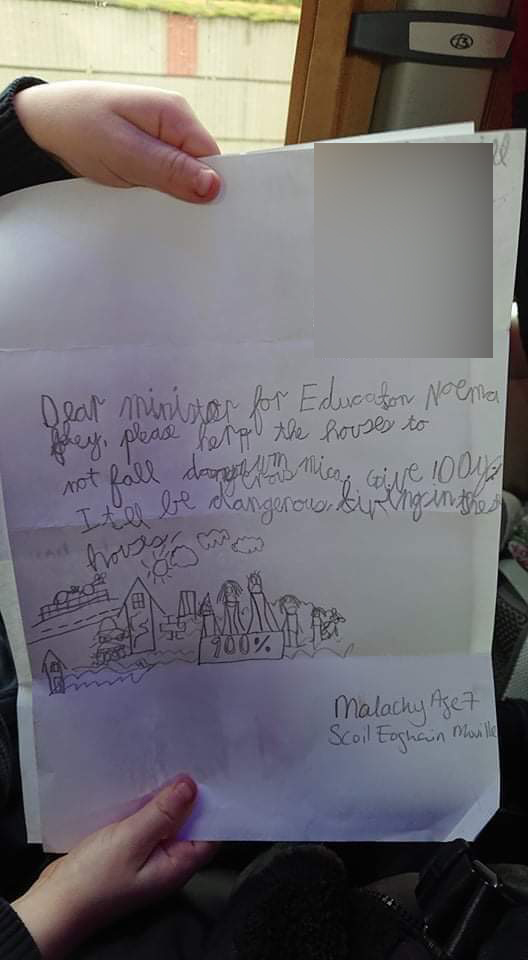 Dear minister for Education Noema
foley, please help the houses to
not fall mica. Give 100%
It ill be dangerous living in the
houses.
100%
Malachy Age 7
Scoil Eoghain Moville